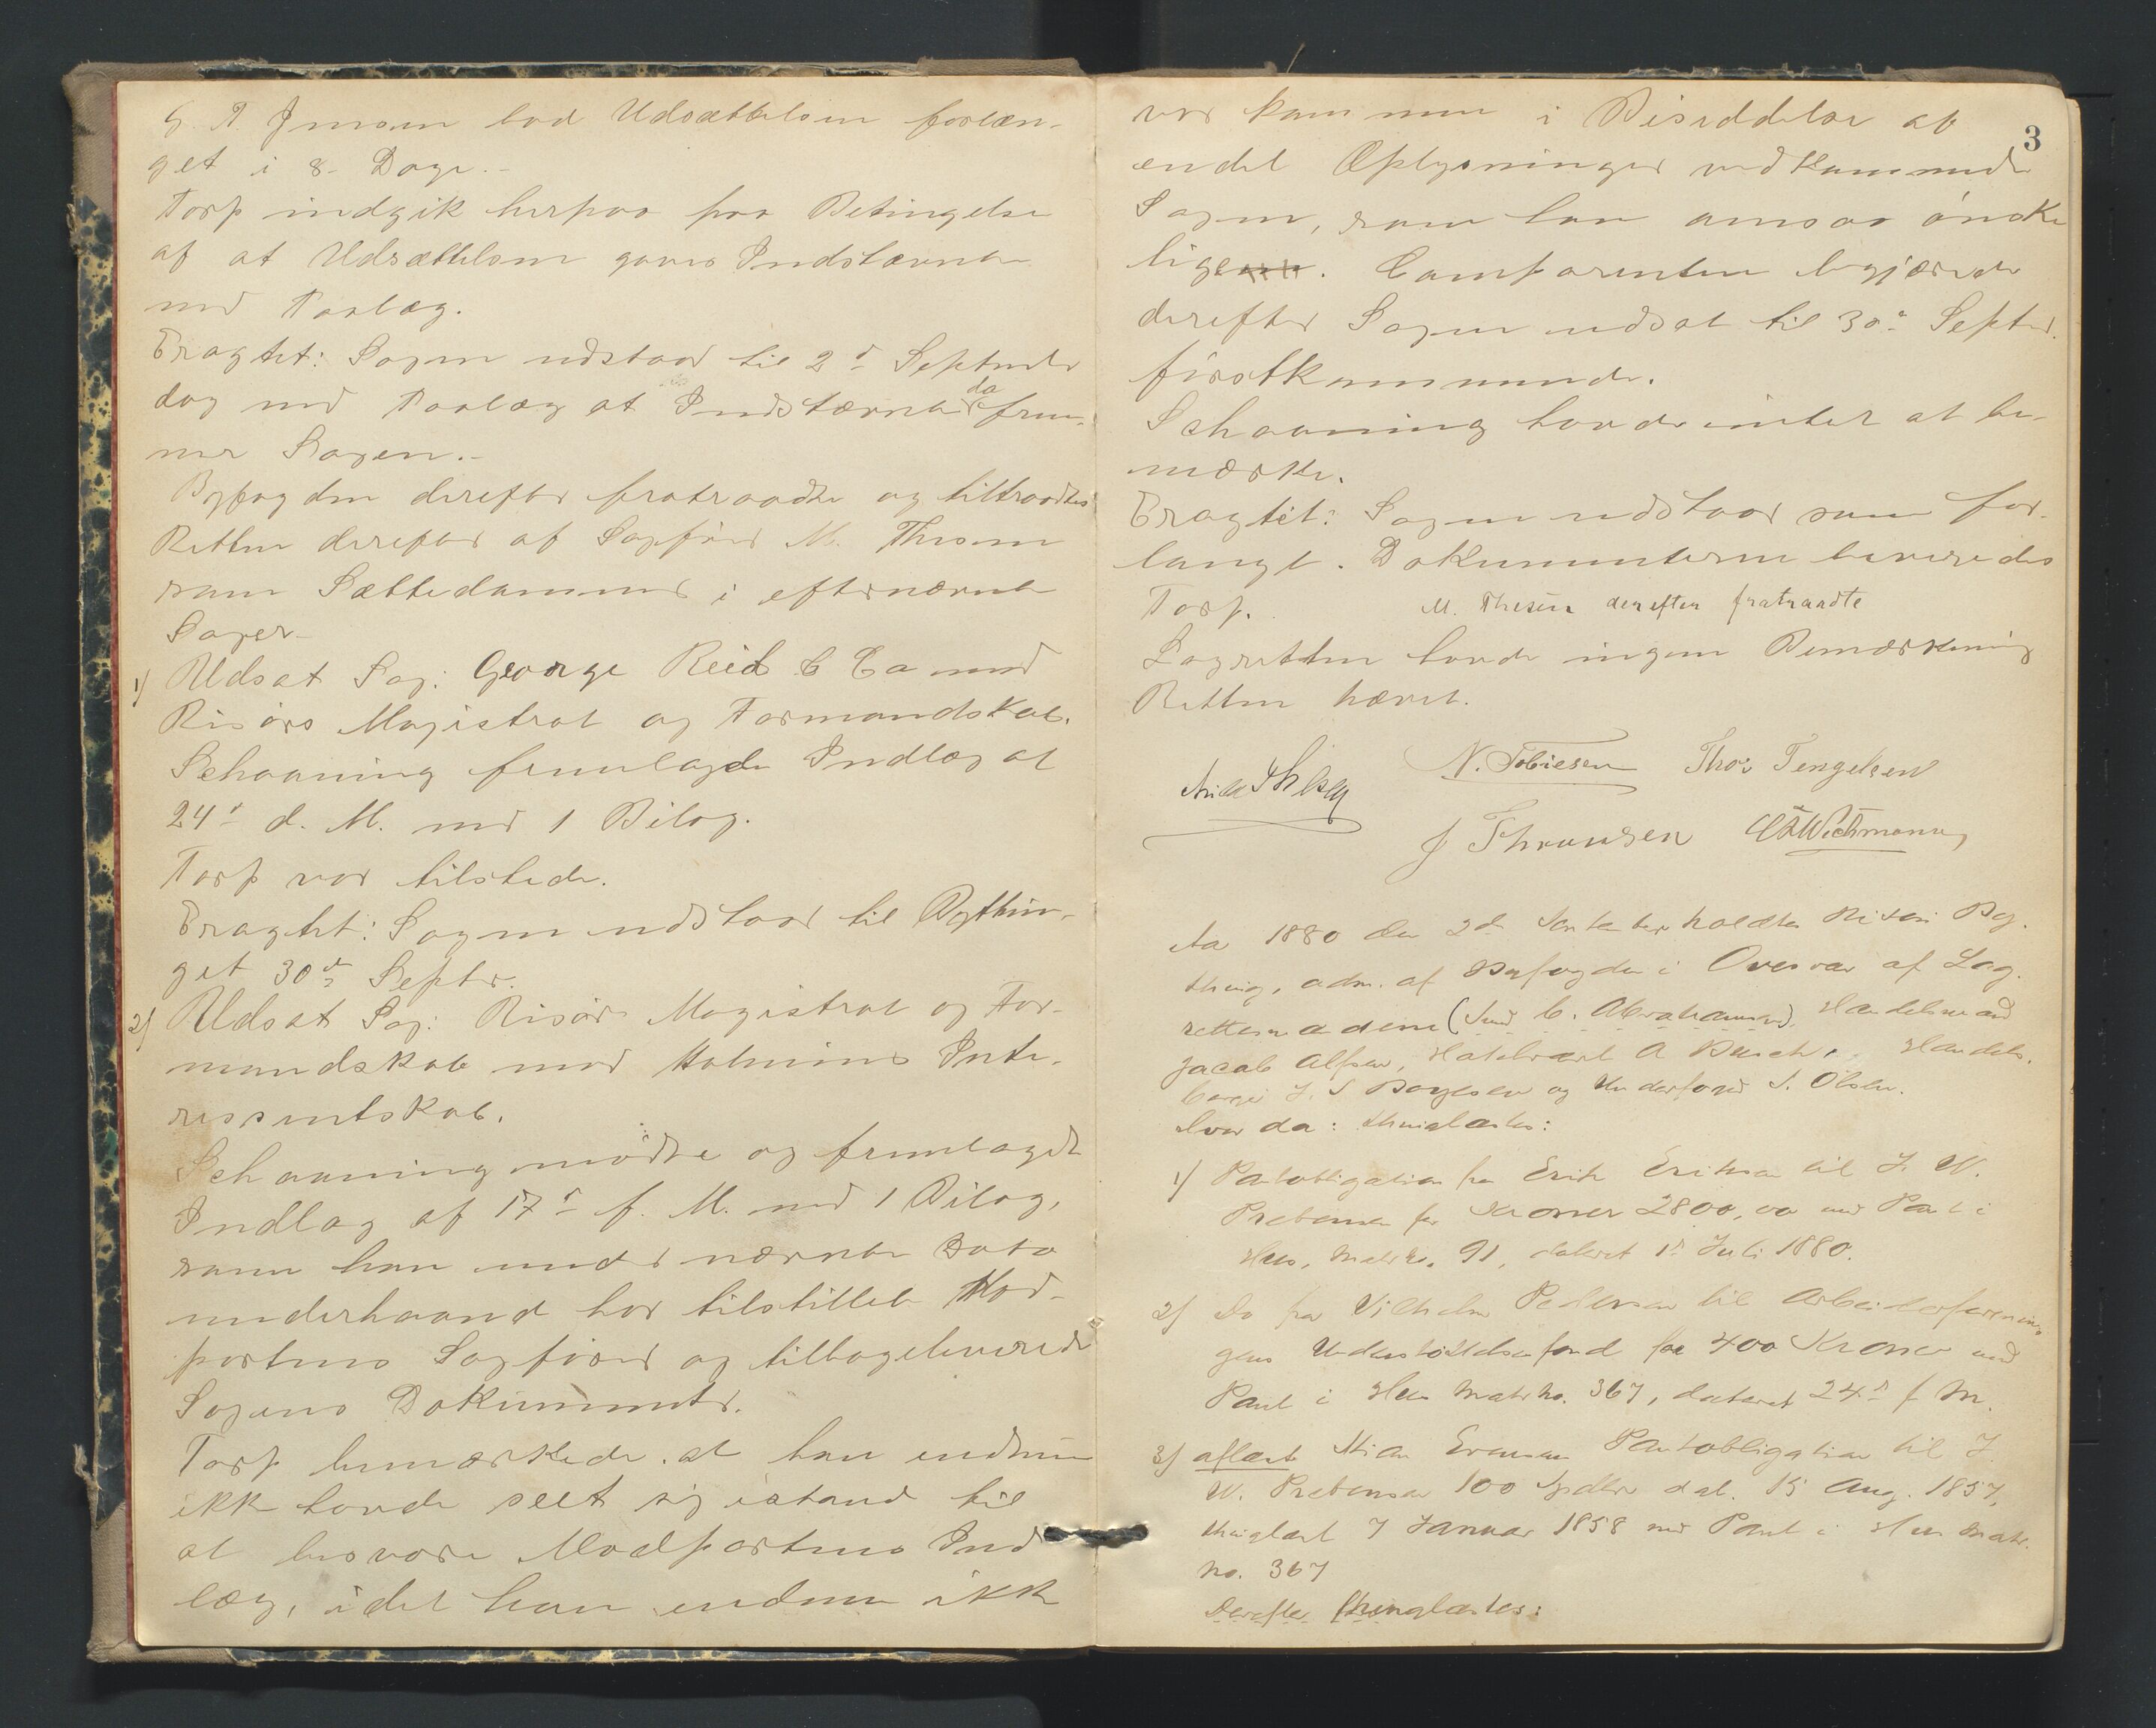 G. A Jensen bad Udsættelsen forlæn-
get i 8. Dage.-
Torp indgik herpaa paa Betingelse
af at Udsættelsen gaves Indstævnte
med Forlæg.
Eragtet: Sagen udstaar til 2d Septembr
dag med Forlæg at Indstævnte da frem-
mer Sagen.-
Byfogden derefter fratraadte og tiltraadtes
Retten derefter af Sagfører M. Thesen
som Sættedommer i efternævnte
Sager-
1) Udsat Sag: George Reid & Co mod
Risørs Magistrat og Formandskab.
Schaaning fremlagde Indlæg af
24d d. M. med 1 Bilag.
Torp var tilstede.
Eragtet: Sagen udstaar til Bythin-
get 30te Septbr.
2) Udsat Sag: Risørs Magistrat og For-
mandskab mod Holmens Inte-
ressentskab.
Schaaning mødte og fremlagde
Indlæg af 17d f. M. med 1 Bilag,
som han under nævnte Dato
underhaand har tilstillet Mod-
partens Sagfører og tilbageleverede
Sagens Dokumenter.
Torp bemærkede at han endnu
ikke havde seet sig istand til
at besvare Modpartens Ind-
læg, idet han endnu ikke
3
var kommen i Besiddelse af
endel Oplysninger vedkommende
Sagen, som han ansaa ønske
lige. Comparenten begjærede
derefter Sagen udsat til 30te Septbr.
førstkommende.
Schaaning havde intet at be-
mærke.
Eragtet: Sagen udstaar som for-
langt. Dokumenterne leveredes
Torp. M. Thesen derefter fratraadte
Lagretten havde ingen Bemærkning
Retten hævet.
N. Tobiesen Thos Tengelsen
J Thronsen Wichmann
Aar 1880 den 2d September holdtes Risør By-
thing, adm. af Byfogden i Overvær af Lag-
rettesmændene ( C. Abrahamsen), Handelsmand
Jacob Alfsen, A Busch, Handels-
borger J. S Boyesen og Underfoged S. Olsen.
Hvor da: thinglæstes:
1) Pantobligation fra Erik Eriksen til J. W.
Prebensen for Kroner 2800,00 med Pant i
Hus, Matr No. 91, dateret 1d Juli 1880.
2) Do fra Vilhelm Pedersen til Arbeiderforenin-
gens Understøttelsesfond for 400 Kroner med
Pant i Hus Matr No. 367, dateret 24d f M.
3) aflæst Pantobligation til J.
W. Prebensen 100 Spdlr dat. 15 Aug. 1857,
thinglæst 7 Januar 1858 med Pant i Hus Matr.
No. 367
Derefter thinglæstes: